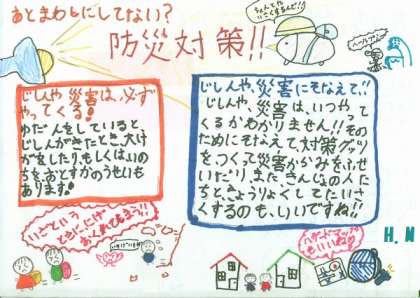 あとまわしにしてない？
防災対策!!
ちゃんとひなんくんれんするんだよ!!
じしんや災害は、必ず
やってくる!
ゆだんをしていると、
じしんがきたとき、大け
がをしたり、もしくは、いの
ちをおとすかのうせいも
あります!
じしんや、災害にそなえて!!
じしんや、災害は、いつやっ
てくるかわかりません!!その
ためにそなえて、対策グッズ
をつくって災害から
みをふせ
いだり、また、きんじょの人た
ちときょうりょくしてたいさ
くするのも、いいですね!!
いざという
ときににげ
おくれてるかも!!
ハザードマップ
もいいね!
H. N